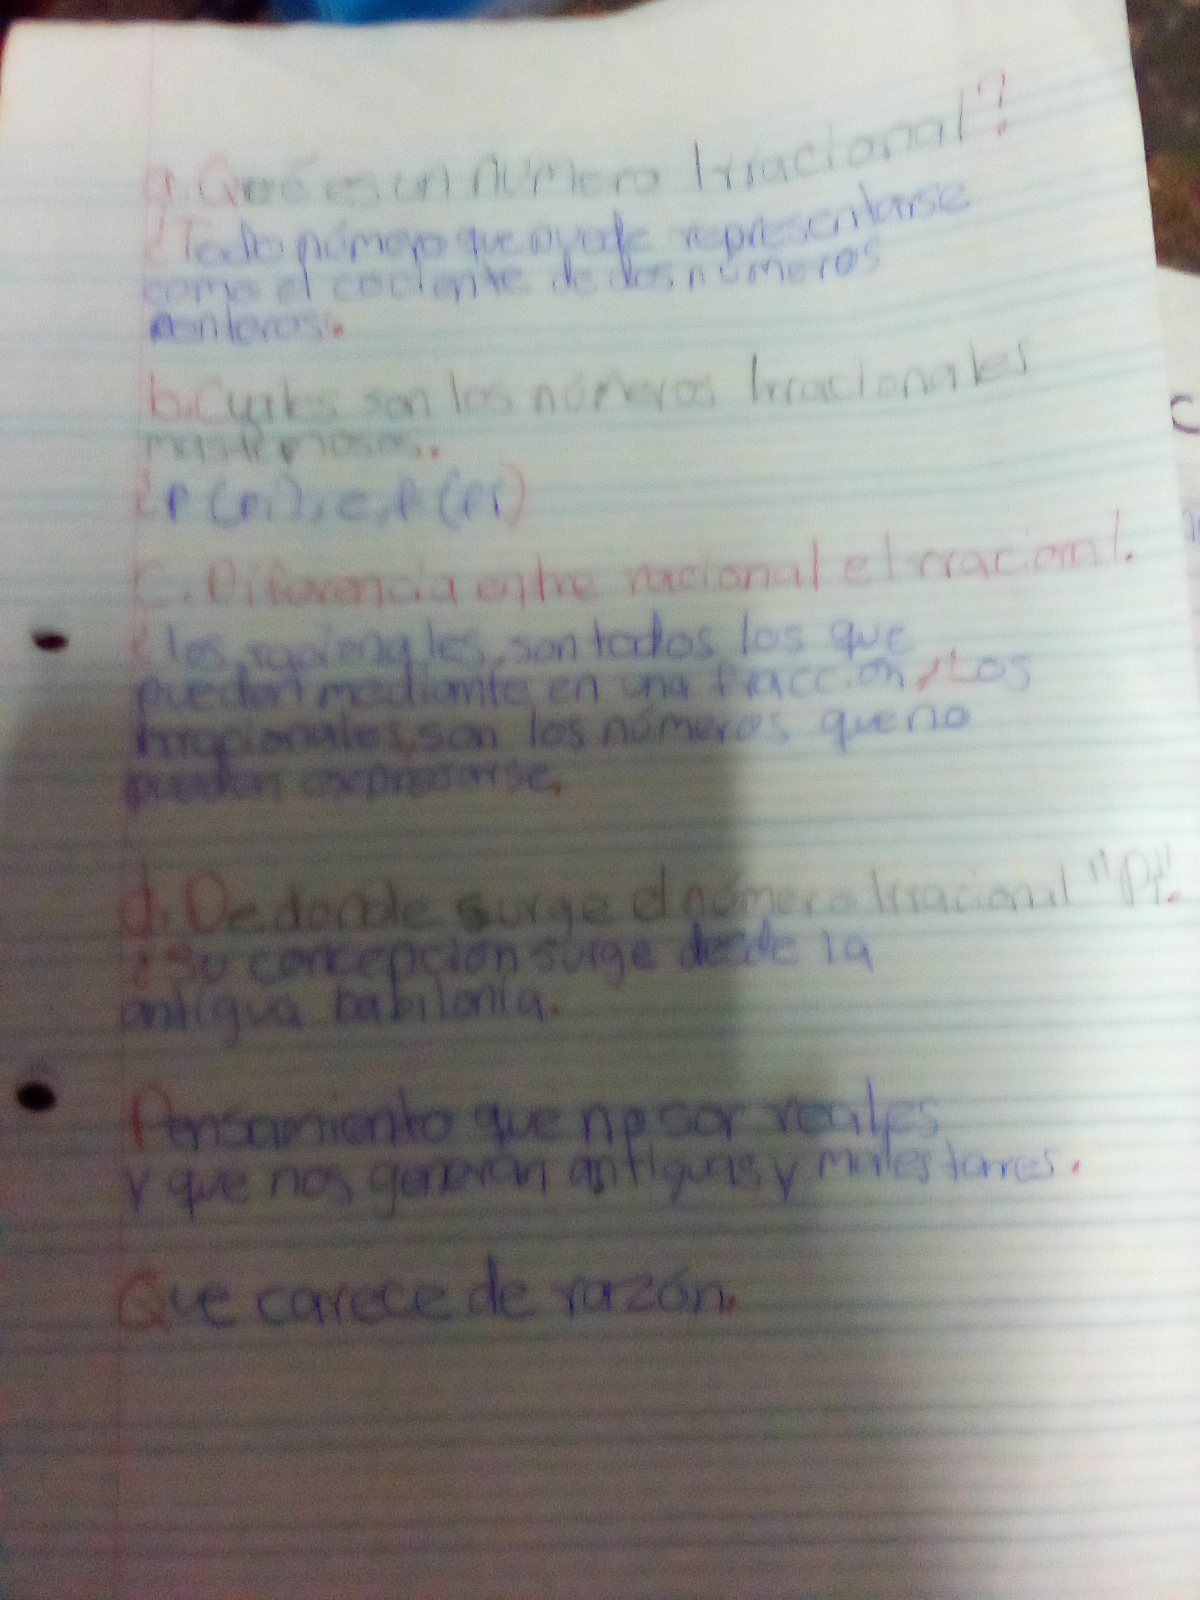 a. Qué es un número Irracional?
¿Todo número que puede representarse
como el cociente de dos números
enteros.
b. Cuales son los números Irracionales
mas famosos.
¿P (Pi), e, P (Pi)
C. Diferencia entre racional e Irracional.
¿los racionales, son todos los que
pueden mediante en una fracción, Los
Irracionales, son los números que no
pueden expresarse.
d. De donde surge el número Irracional "Pi".
¿Su concepción surge desde la
antigua babilonia.
Pensamiento que no son reales
y que nos generan antiguas y malestares.
Que carece de razón.